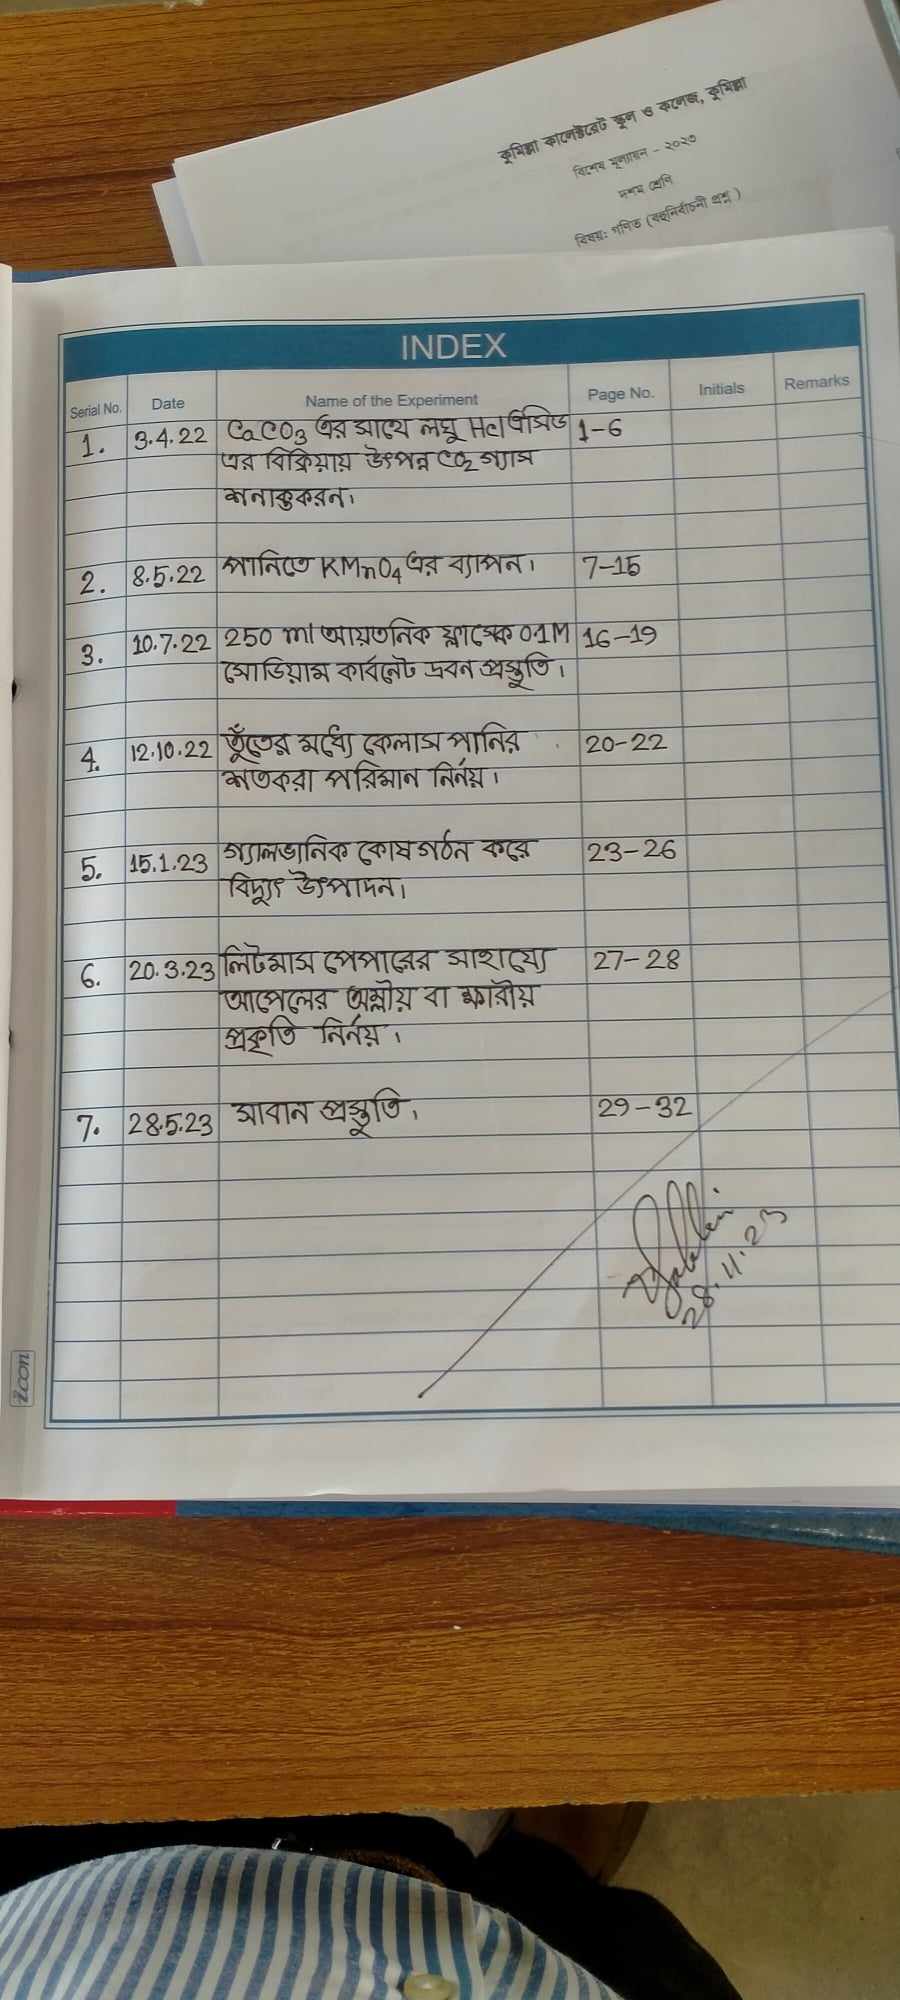 কুমিল্লা কালেক্টরেট স্কুল ও কলেজ, কুমিল্লা
বিশেষ মূল্যায়ন - ২০২৩
দশম শ্রেণি
বিষয়: গণিত (বহুনির্বাচনী প্রশ্ন)
INDEX
Serial No. Date Name of the Experiment Page No. Initials Remarks
1. 3.4.22 CaCO3 এর সাথে লঘু HCl এসিড 1-6
এর বিক্রিয়ায় উৎপন্ন CO2 গ্যাস
শনাক্তকরন।
2. 8.5.22 পানিতে KMnO4 এর ব্যাপন। 7-15
3. 10.7.22 250 ml আয়তনিক ফ্লাস্কে 0.1M 16-19
সোডিয়াম কার্বনেট দ্রবন প্রস্তুতি।
4. 12.10.22 তুঁতের মধ্যে কেলাস পানির 20-22
শতকরা পরিমান নির্নয়।
5. 15.1.23 গ্যালভানিক কোষ গঠন করে 23-26
বিদ্যুৎ উৎপাদন।
6. 20.3.23 লিটমাস পেপারের সাহায্যে 27-28
আপেলের অম্লীয় বা ক্ষারীয়
প্রকৃতি নির্নয়।
7. 28.5.23 সাবান প্রস্তুতি। 29-32
28.11.23
icon